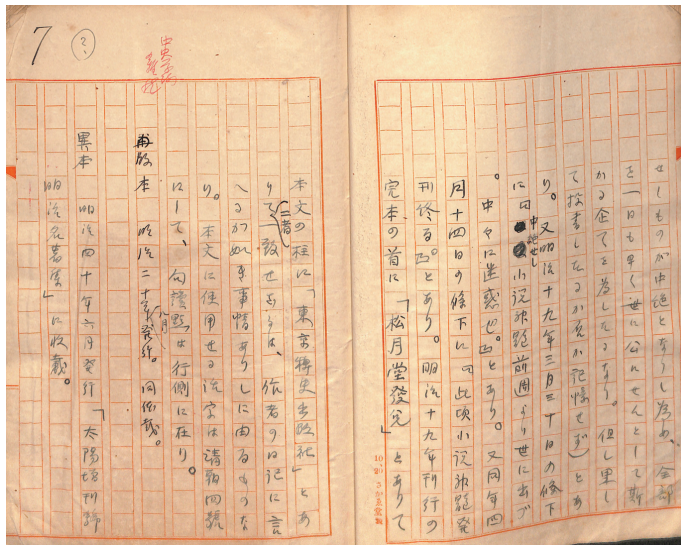 せしものが中絶となりし為め、全部
を一日も早く世に公にせんとして斯
かる企てを為したるなり。但し果し
て投書したるか否か記憶せず）とあ
り。又明治十九年三月三十日の條下
に曰 中絶せし 小説 前週より世に出づ
。中々に迷惑也。とあり。又同年四
月十四日の條下に、此頃小説 発
刊終る。とあり。明治十九年刊行の
完本の首に「松月堂發兌」とありて
本文の柱に「東京稗史出版社」とあ
りて 二者 一致せざるは、作者の日記に言
へるが如き事情ありしに由るものな
り。本文に使用せる活字は清朝四號
にして、句讀點は行側に在り。
再版本 明治二十 年 八月 發行。同作載。
異本 明治四十年六月発行「太陽増刊號
明治名著集」に收載。
7
?
中央公論
10,20